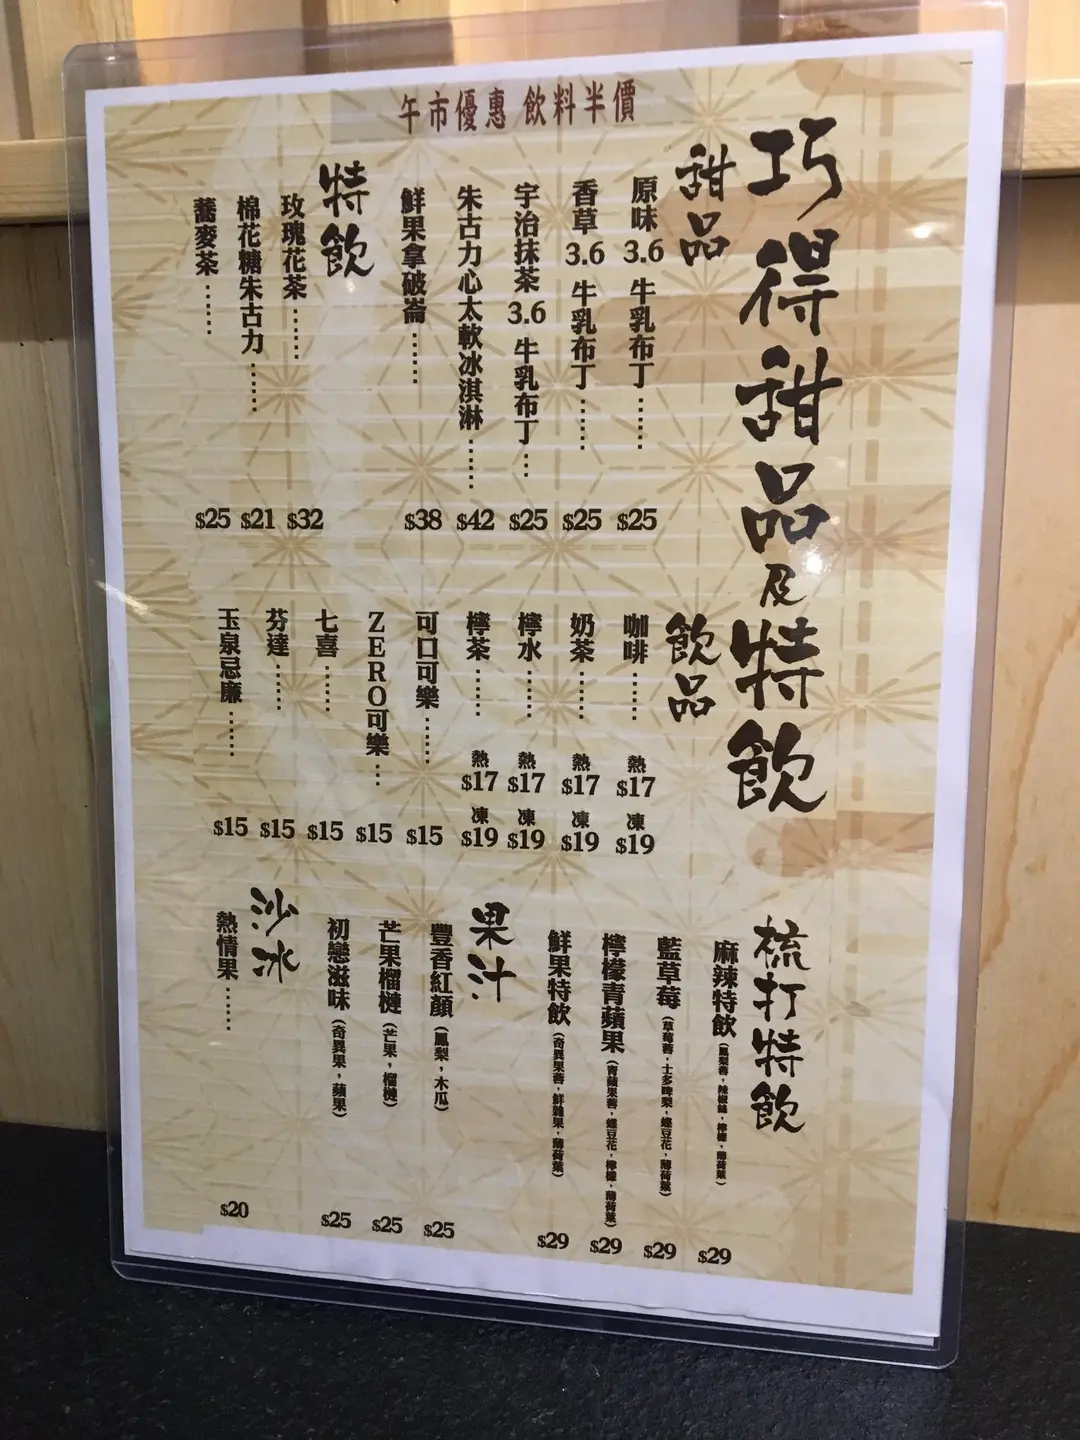 午市優惠 飲料半價
巧得甜品及特飲
甜品
原味3.6牛乳布丁⋯⋯ $25
香草3.6牛乳布丁⋯⋯ $25
宇治抹茶3.6牛乳布丁⋯ $25
朱古力心太軟冰淇淋⋯⋯ $42
鮮果拿破崙⋯⋯ $38
特飲
玫瑰花茶⋯⋯ $32
棉花糖朱古力⋯⋯ $21
蕎麥茶⋯⋯ $25
飲品
咖啡⋯⋯ 熱$17 凍$19
奶茶⋯⋯ 熱$17 凍$19
檸水⋯⋯ 熱$17 凍$19
檸茶⋯⋯ 熱$17 凍$19
可口可樂⋯⋯ $15
ZERO可樂⋯ $15
七喜⋯⋯ $15
芬達⋯⋯ $15
玉泉忌廉⋯⋯ $15
梳打特飲
麻辣特飲(鳳梨蓉，辣椒絲，檸檬，薄荷葉) $29
藍草莓(草莓蓉，士多啤梨，蝶豆花，薄荷葉) $29
檸檬青蘋果(青蘋果蓉，蝶豆花，檸檬，薄荷葉) $29
鮮果特飲(奇異果蓉，鮮雜果，薄荷葉) $29
果汁
豐香紅顏(鳳梨，木瓜) $25
芒果榴槤(芒果，榴槤) $25
初戀滋味(奇異果，蘋果) $25
沙冰
熱情果⋯⋯ $20